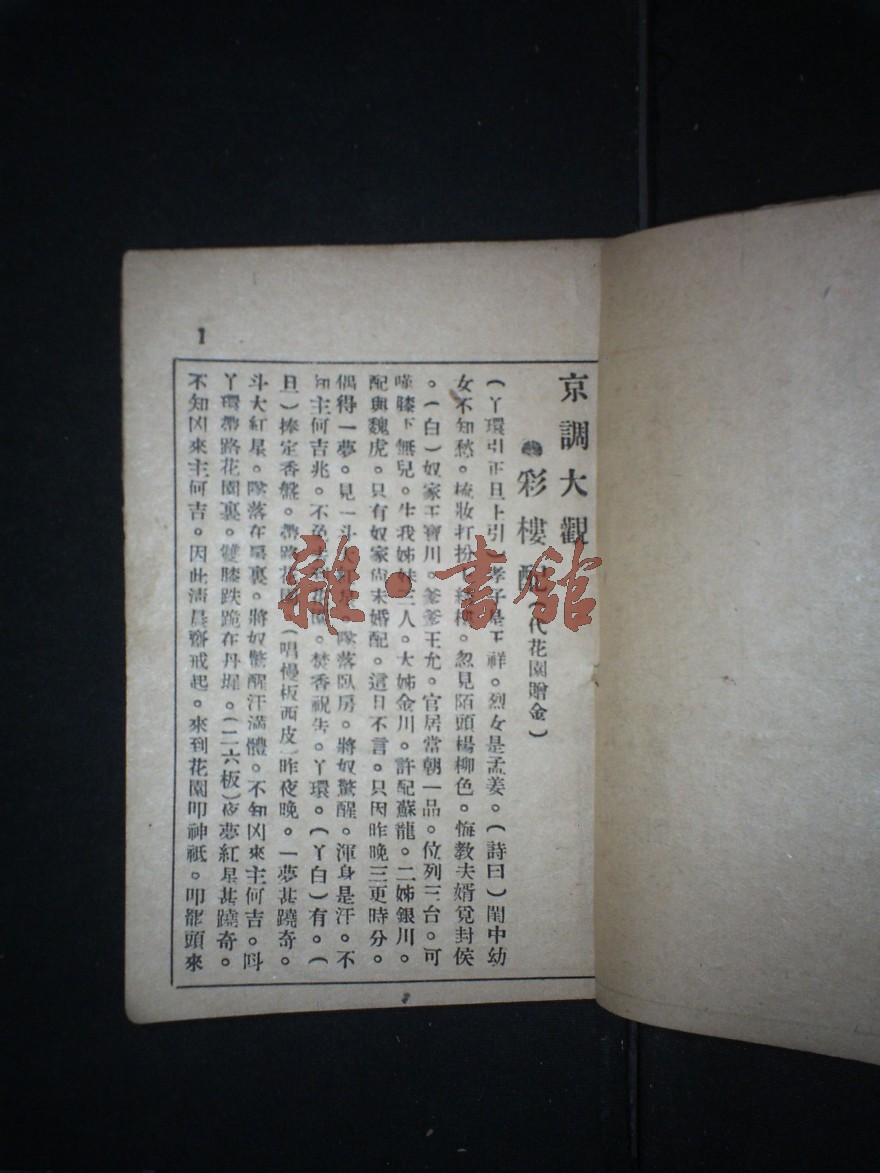 1
京調大觀
彩樓配(代花園贈金)
(丫環引正旦上引)孝子是王祥。烈女是孟姜。(詩曰)閨中幼
女不知愁。梳妝打扮上綵樓。忽見陌頭楊柳色。悔教夫婿覓封侯
。(白)奴家王寶川。爹爹王允。官居當朝一品。位列三台。可
嘆膝下無兒。生我姊妹三人。大姊金川。許配蘇龍。二姊銀川。
配與魏虎。只有奴家尚未婚配。這日不言。只因昨晚三更時分。
偶得一夢。見一斗大紅星。墜落臥房。將奴驚醒。渾身是汗。不
知主何吉兆。不免去到花園。焚香祝告。丫環。(丫白)有。(
旦)捧定香盤。帶路花園。(唱慢板西皮)昨夜晚。一夢甚蹺奇。
斗大紅星。墜落在房裏。將奴驚醒汗滿體。不知凶來主何吉。叫
丫環帶路花園裏。雙膝跌跪在丹墀。(二六板)夜夢紅星甚蹺奇。
不知凶來主何吉。因此清晨齋戒起。來到花園叩神祇。叩罷頭來
雜·書館